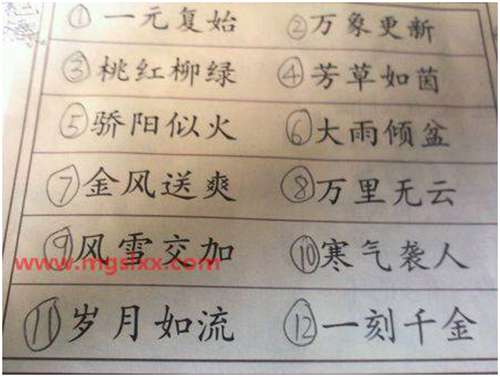 ①一元复始 ②万象更新
③桃红柳绿 ④芳草如茵
⑤骄阳似火 ⑥大雨倾盆
⑦金风送爽 ⑧万里无云
⑨风雪交加 ⑩寒气袭人
www.mgslxx.com
⑪岁月如流 ⑫一刻千金